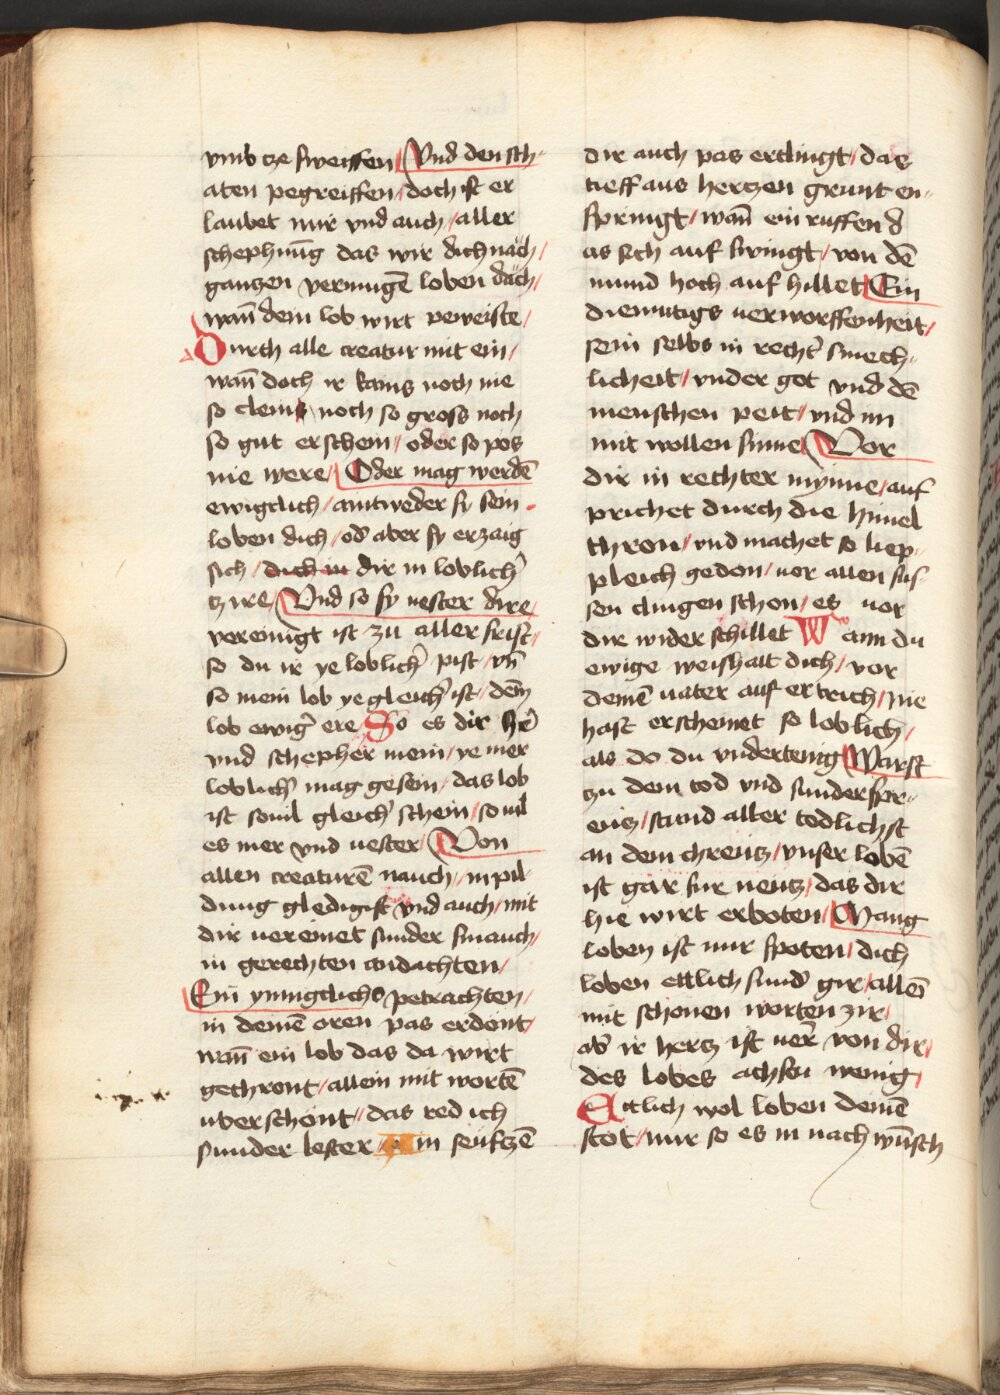 vmb cze sweiffen / Vnd den sch-
aten pegreiffen / doch ist er
laubet mir vnd auch / aller
schephūg das wir dich nach /
ganczen vermugē loben dach /
wañ dem lob wirt peweiste /
Durch alle creatur mit ein /
wañ doch ir kains noch nie
so clein noch so gross noch
so gut erschein / oder so pos
nie were / Oder mag werdē
ewigclich / aintweder sy sein
loben dich / od aber sy erzaig
sich / dich in dir in loblich̄
zire / Vnd so sy uester dire /
vereinigt ist zu aller frist /
so du ir ye loblich̄ pist / vñ
so mein lob ye gleich̄ ist / dem
lob ewiḡ ere / So es dir h̄r
vnd schepher mein / ye mer
loblich̄ mag gesein / das lob
ist souil gleich̄ schein / souil
es mer vnd uester / Von
allen creaturē nauch / in pil-
dung gledigist vnd auch / mit
dir uereinet sunder smauch /
in gerechten andachten /
Ein ynnigclichs petrachten /
in deinē oren pas erdont /
wañ ein lob das da wirt
gechront / allein mit wortē
uberschont / das red ich
sunder lester / in seufczē
dir auch pas erclingt / das
tieff aus herczen grunt en-
springt / wañ ein ruffen d
as sich auf swingt / von dē
mund hoch auf hillet / Ein
diemutigs uerworffenheit /
sein selbs in recht̄ smech-
licheit / vnder got vnd dē
menschen peit / vnd im
mit wollen sinne / Vor
dir in rechter mynne / auf
prichet durch die himel
thron / vnd machet so liep-
pleich gedon / uor allen sus-
sen clingen schon / es uor
dir wider schillet Wann du
ewige weishait dich / vor
deinē uater auf ertreich / nie
hast erscheinet so loblich /
als do du vndertenig Warst
zu dem tod vnd sunder sper-
encz / stund aller todlichst
an dem chreucz / vnser lobē
ist gar fur neucz / das dir
hie wirt erboten / Mang
loben ist nur spoten / dich
loben ettlich sund gir / allē
mit schonen worten zir /
ab ir hercz ist uer̄ von dir /
des lobes achstu wenig /
Ettlich wol loben deinē
stot / nur so es in nach wūsch